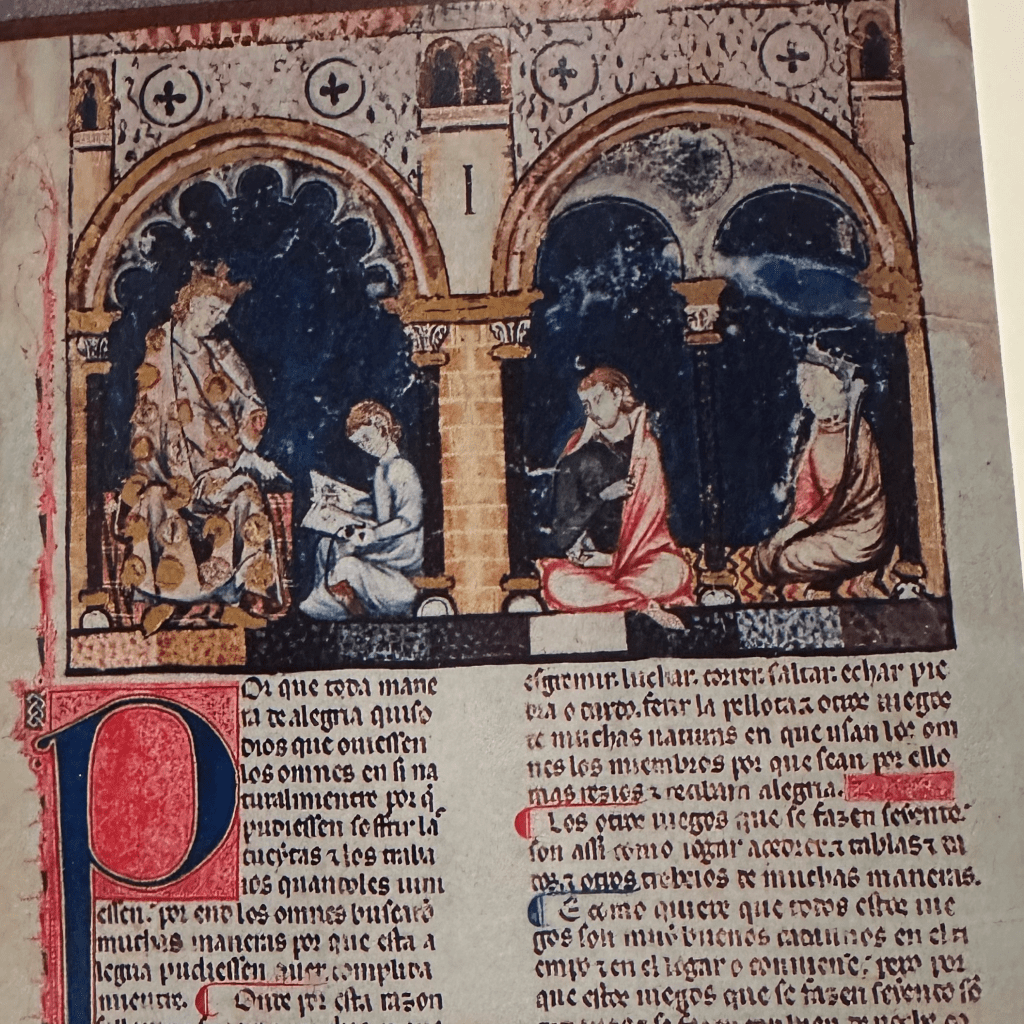 I
Por que toda mane
ra de alegria quiso
dios que ouiessen
los omnes en si na
turalmientre por q̄
pudiessen soffrir las
cueytas ⁊ los traba
ios quandoles uini
essen. por end los omnes buscarō
muchas maneras por que esta a
legria pudiessen auer complida
mientre. Onde por esta razon
esgremir. luchar. correr. saltar. echar pie
dra o dardo. ferir la pellota ⁊ otros iuegos
de muchas naturas en que usan los om
nes los miembros por que sean por ello
mas rezios ⁊ reciban alegria.
Los otros iuegos que se fazen seyendo
son assi como iogar acedrex. ⁊ tablas ⁊ da
dos. ⁊ otros trebeios de muchas maneras.
E como quiere que todos estos iue
gos son muy buenos cadaunos en el ti
empo ⁊ en el logar o conuiene. pero por
que estos iuegos que se fazen seyendo sō